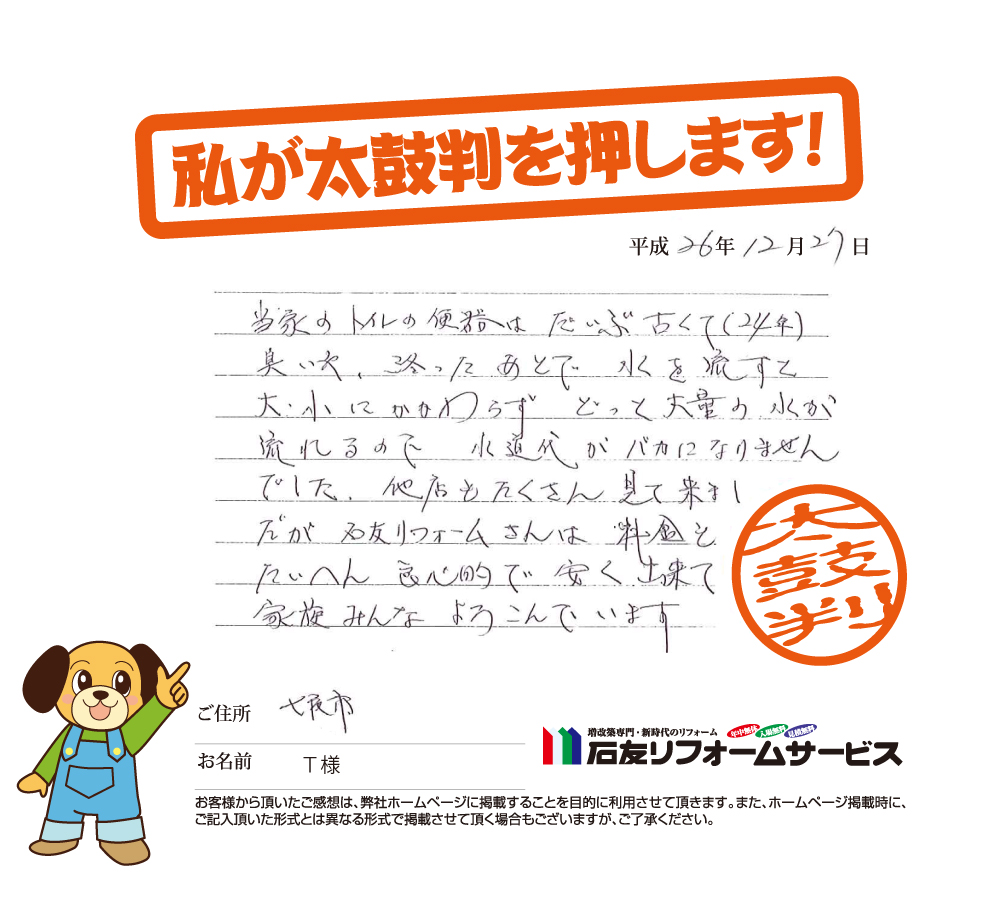 私が太鼓判を押します!
平成26年12月27日
当家のトイレの便器は だいぶ古くて(24年)
臭いや、終ったあとで 水を流すと
大・小にかかわらず どっと大量の水が
流れるので 水道代がバカになりません
でした。他店もたくさん見て来まし
だが 石友リフォームさんは 料金も
たいへん良心的で 安く出来て
家族みんな よろこんでいます
太鼓判
ご住所 七尾市
お名前 T様
増改築専門・新時代のリフォーム 年中無休 入場無料 見積無料
石友リフォームサービス
お客様から頂いたご感想は、弊社ホームページに掲載することを目的に利用させて頂きます。また、ホームページ掲載時に、
ご記入頂いた形式とは異なる形式で掲載させて頂く場合もございますが、ご了承ください。